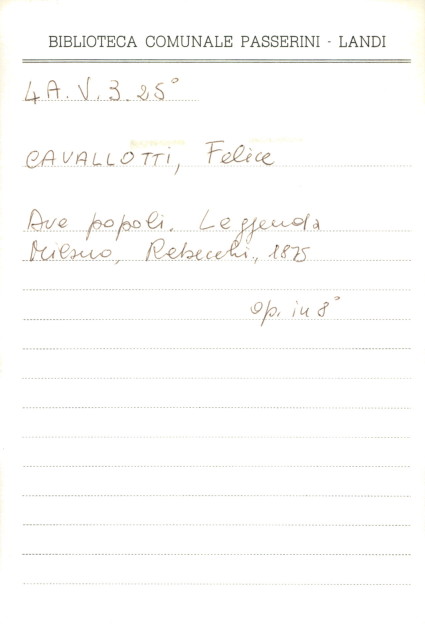 BIBLIOTECA COMUNALE PASSERINI - LANDI
4A.V.3.25°
CAVALLOTTI, Felice
Ave popoli. Leggenda
Milano, Rebecchi, 1875
Op. in 8°